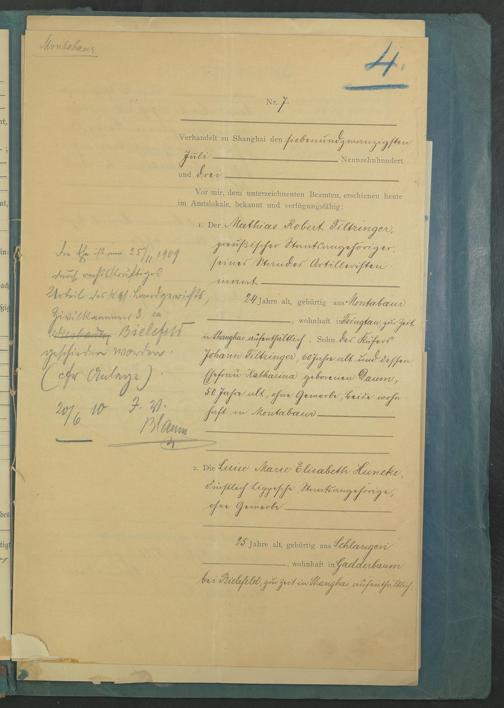 Montabaur
4.
Nr. 7.
Verhandelt zu Shanghai den siebenundzwanzigsten
Juli Neunzehnhundert
und drei
Vor mir, dem unterzeichneten Beamten, erschienen heute
im Amtslokale, bekannt und verfügungsfähig:
1. Der Mathias Robert Filtzinger,
preußischer Staatsangehöriger,
seines Standes Artilleristen
maat
24 Jahre alt, gebürtig aus Montabaur
, wohnhaft in Tsingtau, zur Zeit
in Shanghai aufenthältlich. Sohn des Küfers
Johann Filtzinger, 60 Jahre alt und dessen
Ehefrau Katharina geborenen Daum,
50 Jahre alt, ohne Gewerbe, beide wohn-
haft in Montabaur
2. Die Luise Marie Elisabeth Huneke,
Fürstlich Lippesche Staatsangehörige,
ohne Gewerbe
25 Jahre alt, gebürtig aus Schlangen
, wohnhaft in Gadderbaum
bei Bielefeld, zur Zeit in Shanghai aufenthältlich.
Die Ehe ist am 25/11 1909
durch rechtskräftiges
Urteil des Kgl. Landgerichts,
Zivilkammer 3 in
Bielefeld
geschieden worden.
(cfr Anlage)
20/6 10 J. V.
Blaum